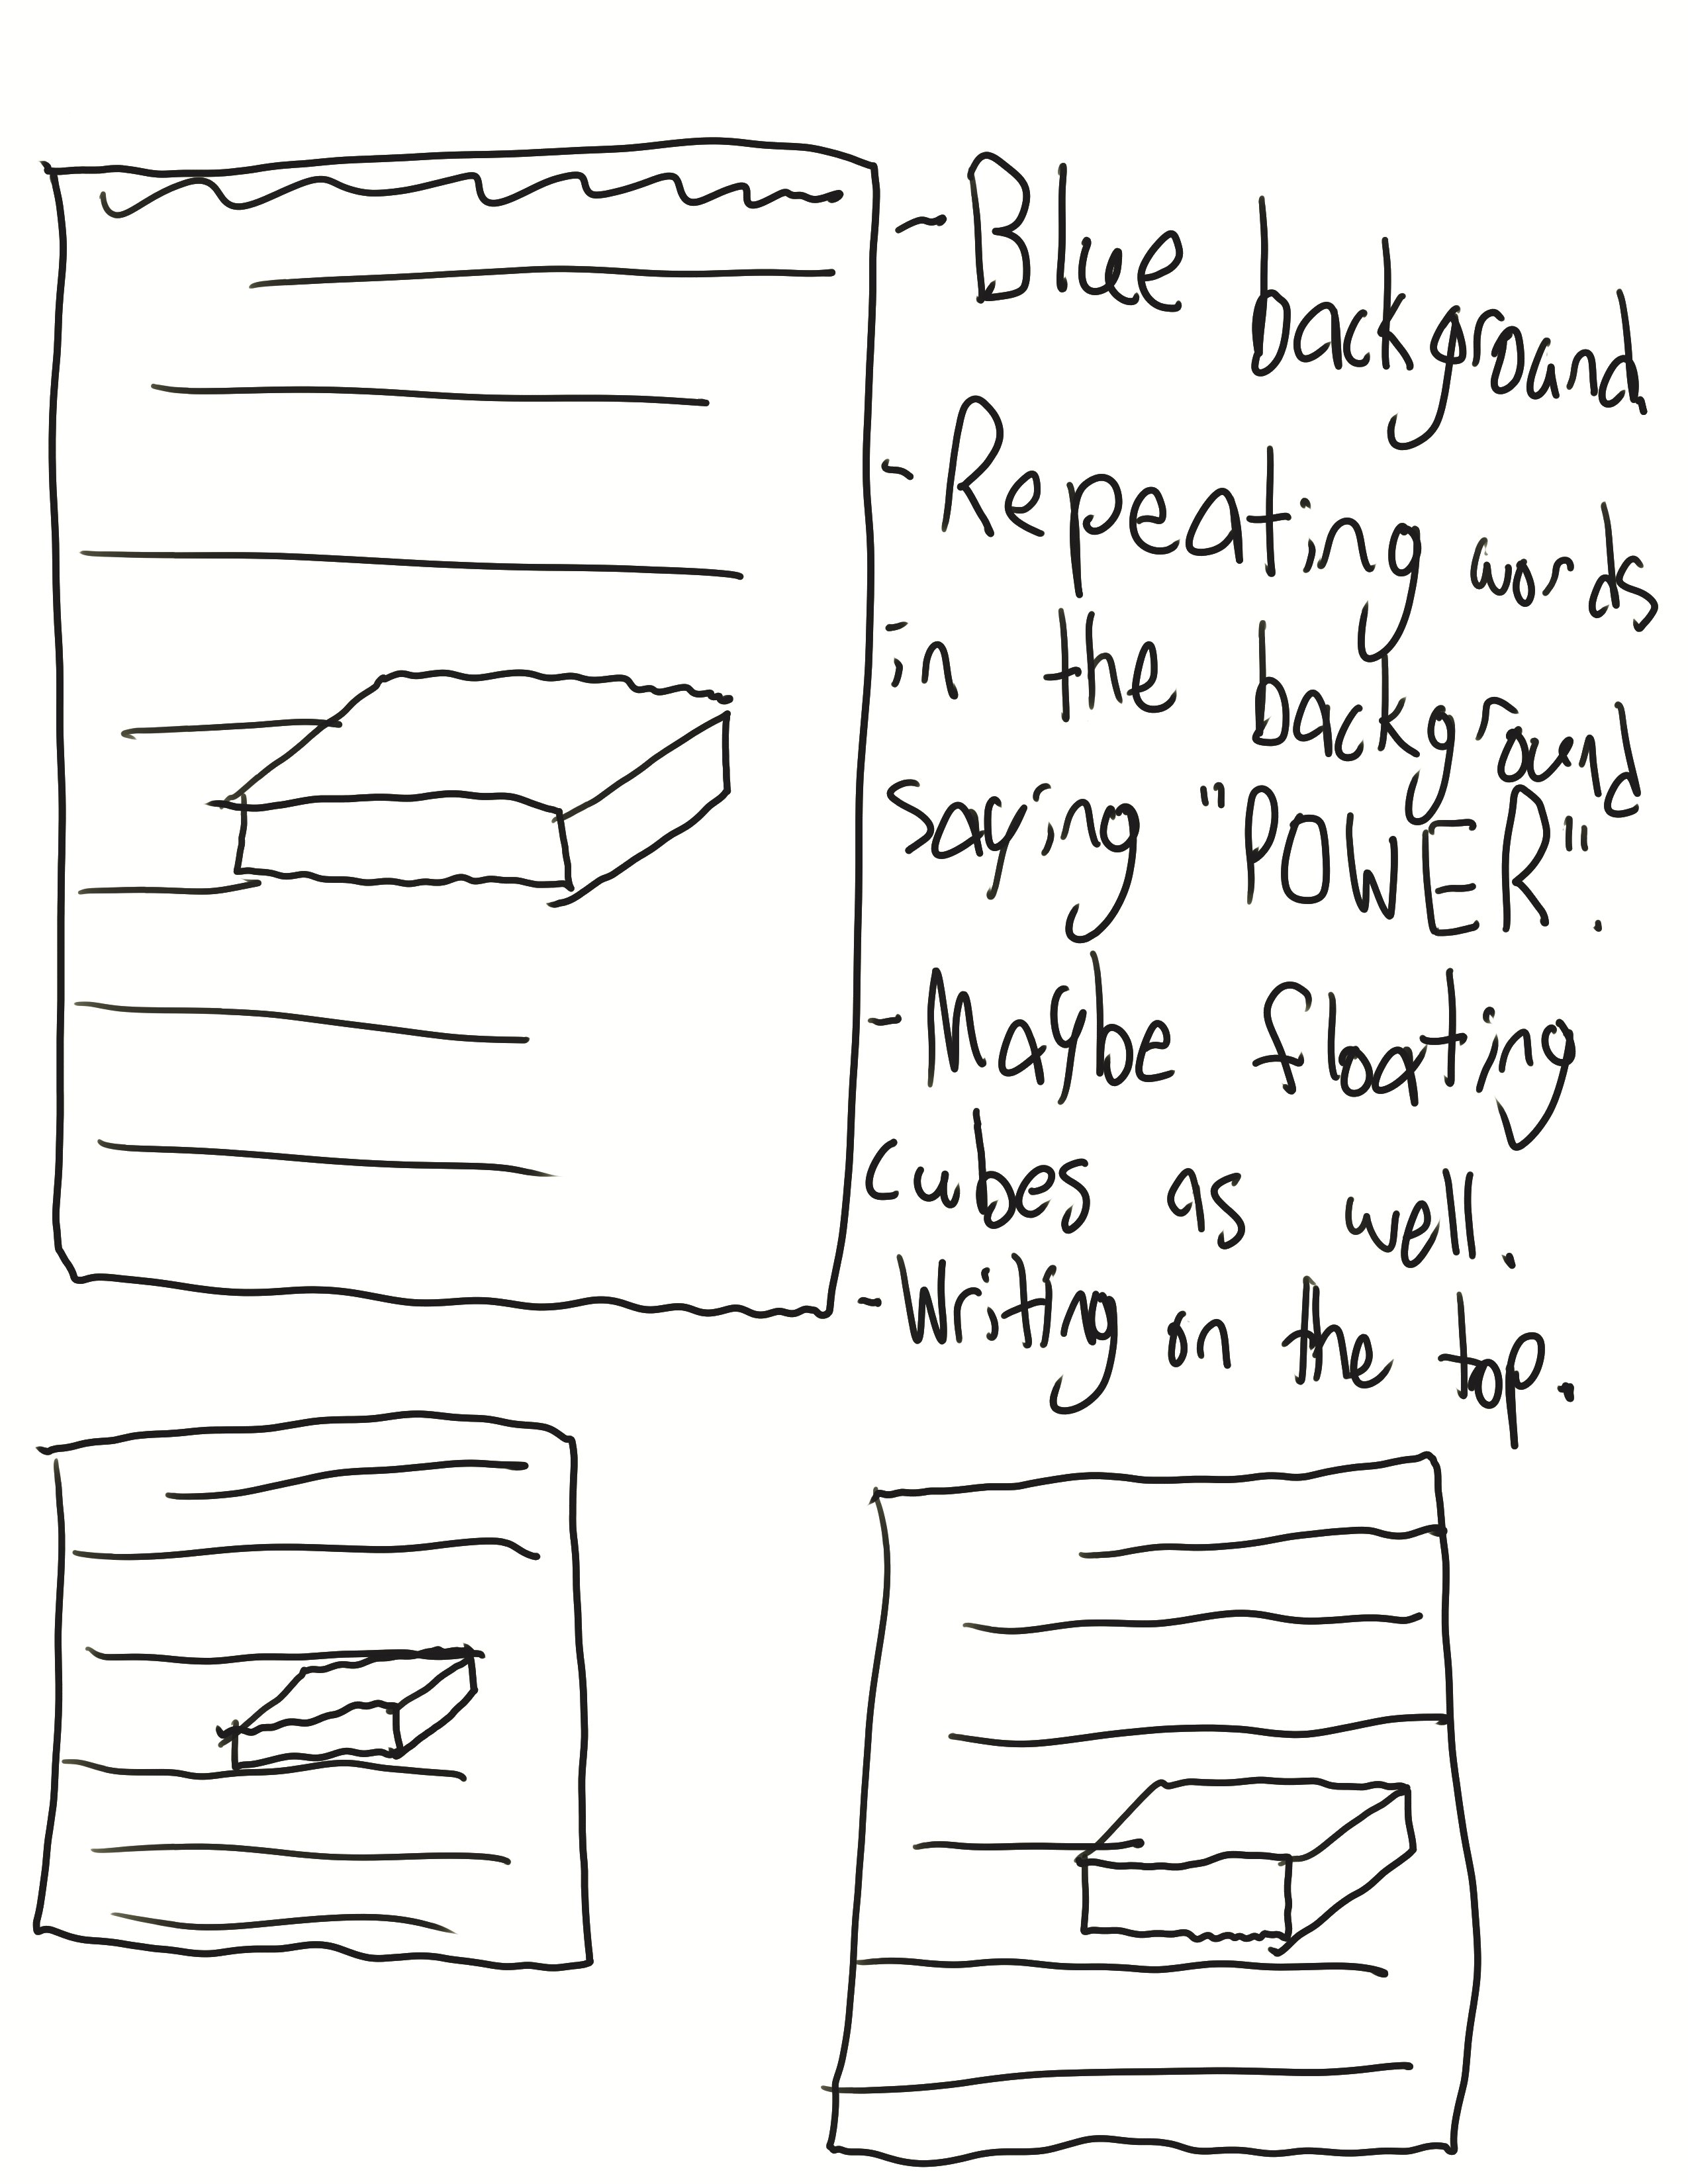 - Blue background
- Repeating words
in the background
saying "POWER".
- Maybe floating
cubes as well.
- Writing on the top.